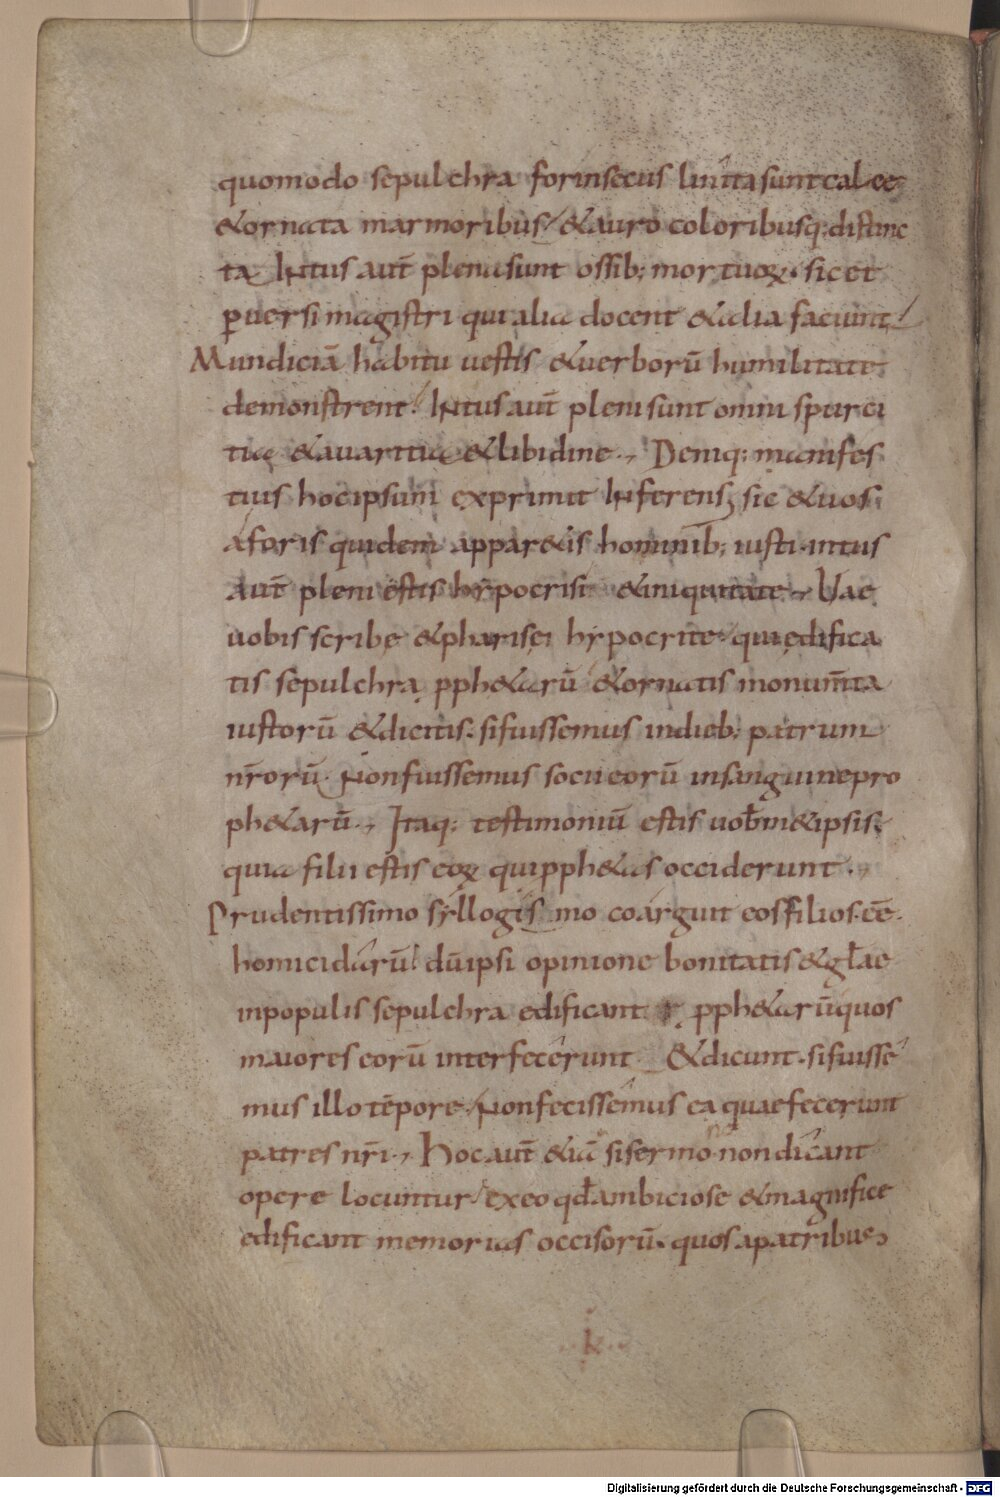 quomodo sepulchra forinsecus linita sunt calce
&ornata marmoribus, &auro coloribusq; distinc
ta Intus aut̄ plena sunt ossib; mortuoꝝ. sic et
ꝑuersi magistri qui alia docent &alia faciunt
Mundiciā habitu uestis &uerborū humilitate
demonstrent. Intus aut̄ pleni sunt omni spurci
tia &auaritia &libidine. Deniq; manifes
tius hoc ipsum exprimit Inferens, sic &uos
aforis quidem appar&is hominib; iusti. intus
aut̄ pleni estis hypocrisi &iniquitate. Uae
uobis scribę &pharisei hypocritę quiędifica
tis sepulchra pph&arū &ornatis monum̄ta
iustorū &dicitis. si fuissemus indieb; patrum
nr̄orū. Non fuissemus socii eorū in sanguine pro
ph&arū. Itaq; testimoniū estis uob̄m&ipsis.
quia filii estis eoꝝ qui pph&as occiderunt.
Prudentissimo syllogis mo coarguit eos filios eē.
homicidarū. dū ipsi opinione bonitatis &gl̄ae
inpopulis sepulchra edificant pph&arū quos
maiores eorū interfecerunt &dicunt. si fuisse
mus illo tēpore. Non fecissemus ea quae fecerunt
patres nr̄i. Hoc aut̄ &iā si sermo non dicant
opere locuntur ex eo qd̄ ambiciose &magnifice
edificant memorias occisorū. quos apatribus
k
Digitalisierung gefördert durch die Deutsche Forschungsgemeinschaft - DFG